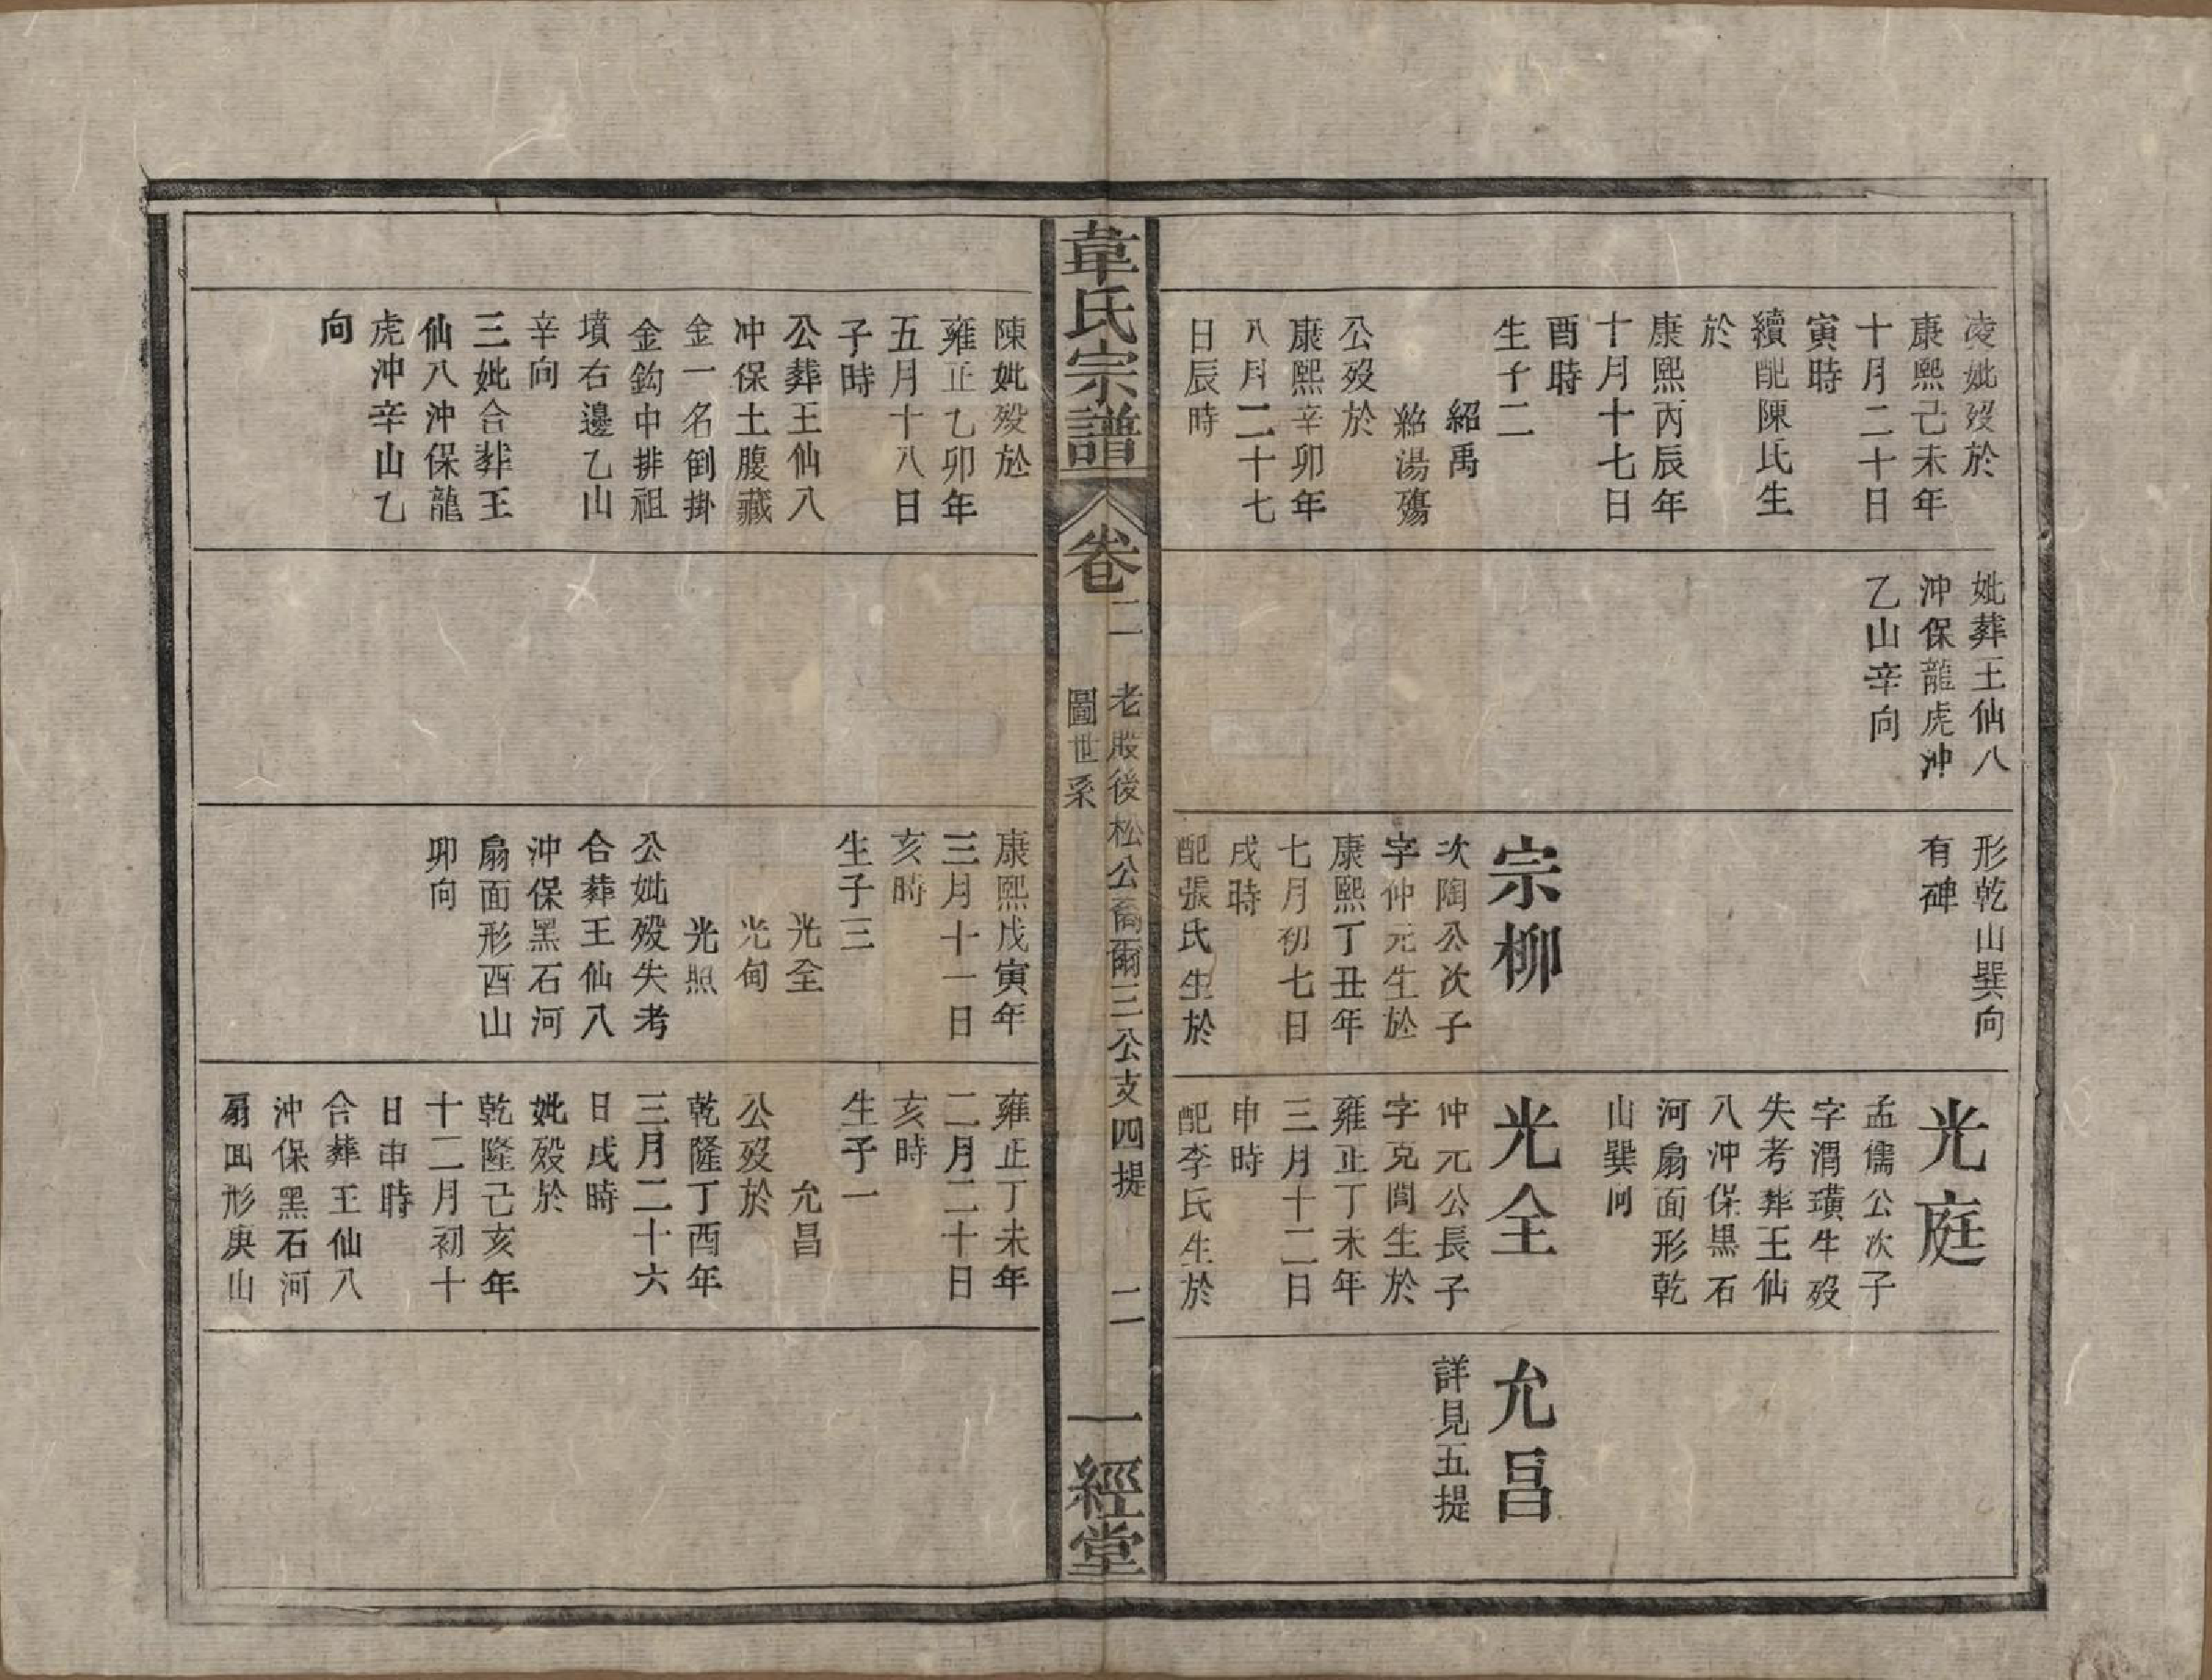 凌妣歿於
康熙己未年
十月二十日
寅時
續配陳氏生
於
康熙丙辰年
十月十七日
酉時
生子二
紹禹
紹湯殤
公歿於
康熙辛卯年
八月二十七
日辰時
妣葬王仙八
沖保龍虎沖
乙山辛向
形乾山巽向
有碑
宗柳
次陶公次子
字仲元生於
康熙丁丑年
七月初七日
戌時
配張氏生於
光庭
孟儒公次子
字渭璜生歿
失考葬王仙
八沖保黑石
河扇面形乾
山巽向
光全
仲元公長子
字克闓生於
雍正丁未年
三月十二日
申時
配李氏生於
允昌
詳見五提
韋氏宗譜
卷二
老股後松公裔爾三公支四提
圖世系
二
一經堂
陳妣歿於
雍正乙卯年
五月十八日
子時
公葬王仙八
沖保土腹藏
金一名倒掛
金鈎中排祖
墳右邊乙山
辛向
三妣合葬王
仙八沖保龍
虎沖辛山乙
向
康熙戊寅年
三月十一日
亥時
生子三
光全
光甸
光照
公妣歿失考
合葬王仙八
沖保黑石河
扇面形酉山
卯向
雍正丁未年
二月二十日
亥時
生子一
允昌
公歿於
乾隆丁酉年
三月二十六
日戌時
妣歿於
乾隆己亥年
十二月初十
日申時
合葬王仙八
沖保黑石河
扇面形庚山